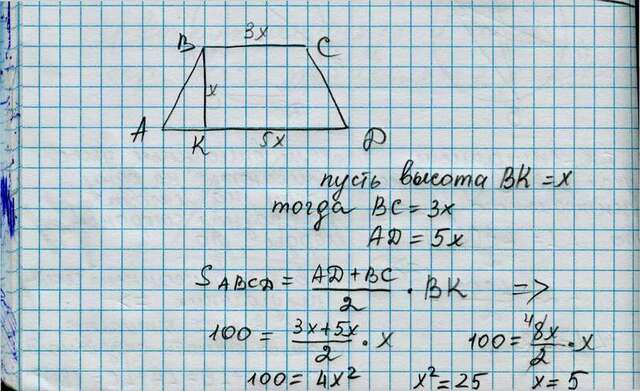 3x
B C
x
A K 5x D
пусть высота BK = x
тогда BC = 3x
AD = 5x
S ABCD = AD + BC / 2 · BK =>
100 = 3x + 5x / 2 · x 100 = 4 8x / 2 · x
100 = 4x² x² = 25 x = 5